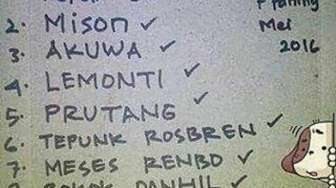 2. Mison ✓
Mei
3. AKUWA ✓
2016
4. LEMONTI ✓
5. PRUTANG ✓
6. TEPUNK ROSBREN ✓
7. MESES RENBO ✓